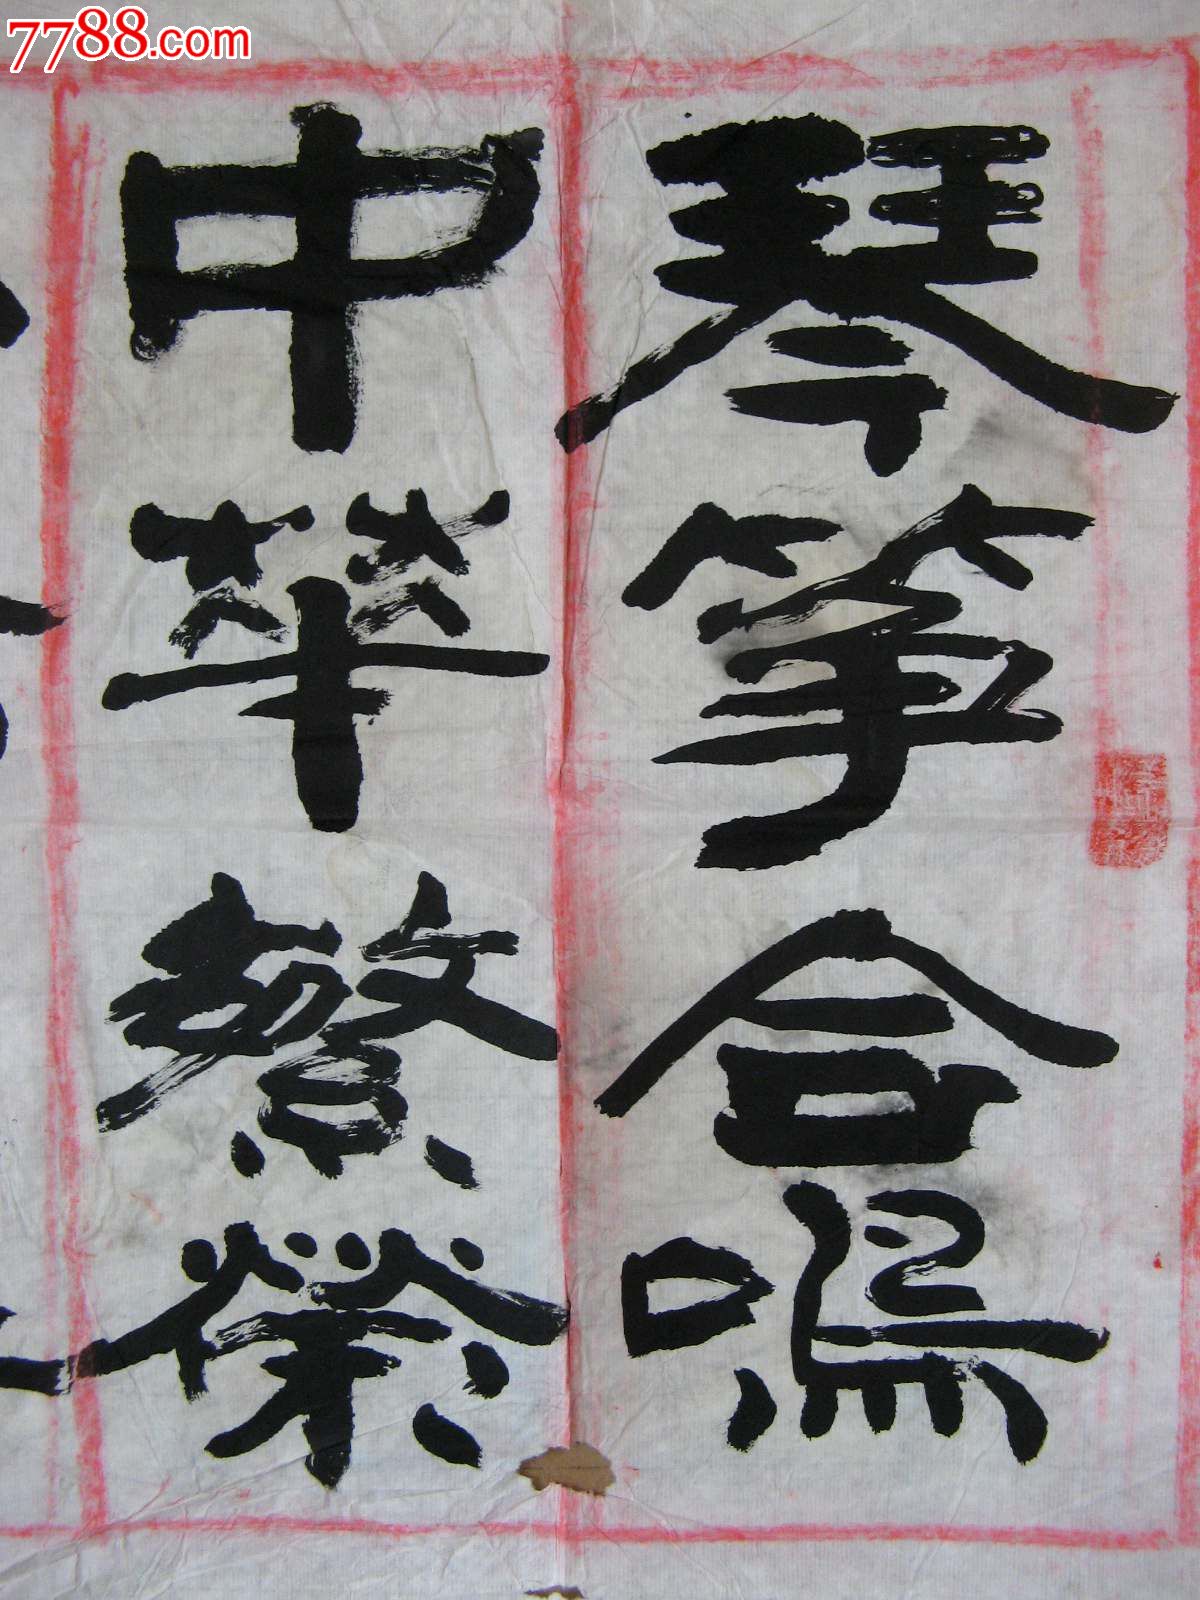 7788.com
琴筝合鳴
中華繁榮